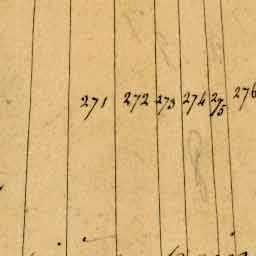 271 272 273 274 275 276